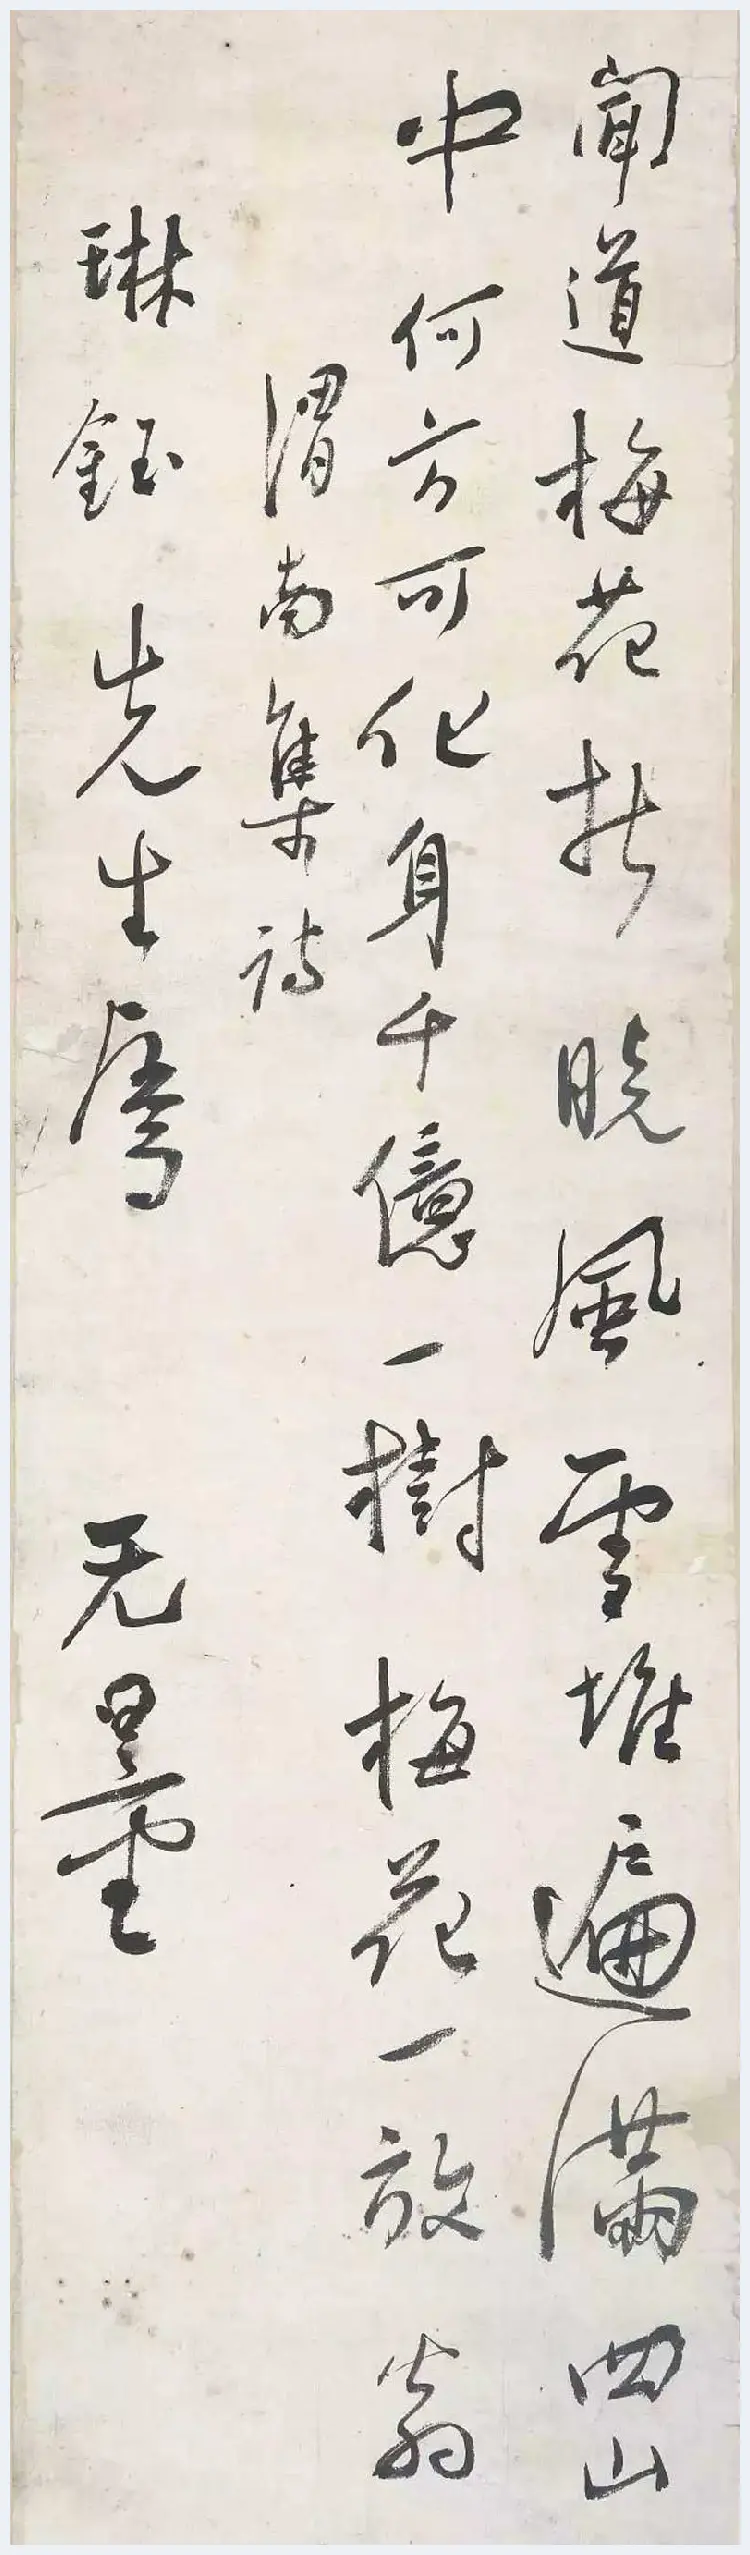 聞道梅花折曉風雪堆遍滿四山
中何方可化身千億一樹梅花一放翁
渭南集詩
琳鈺先生屬 无量